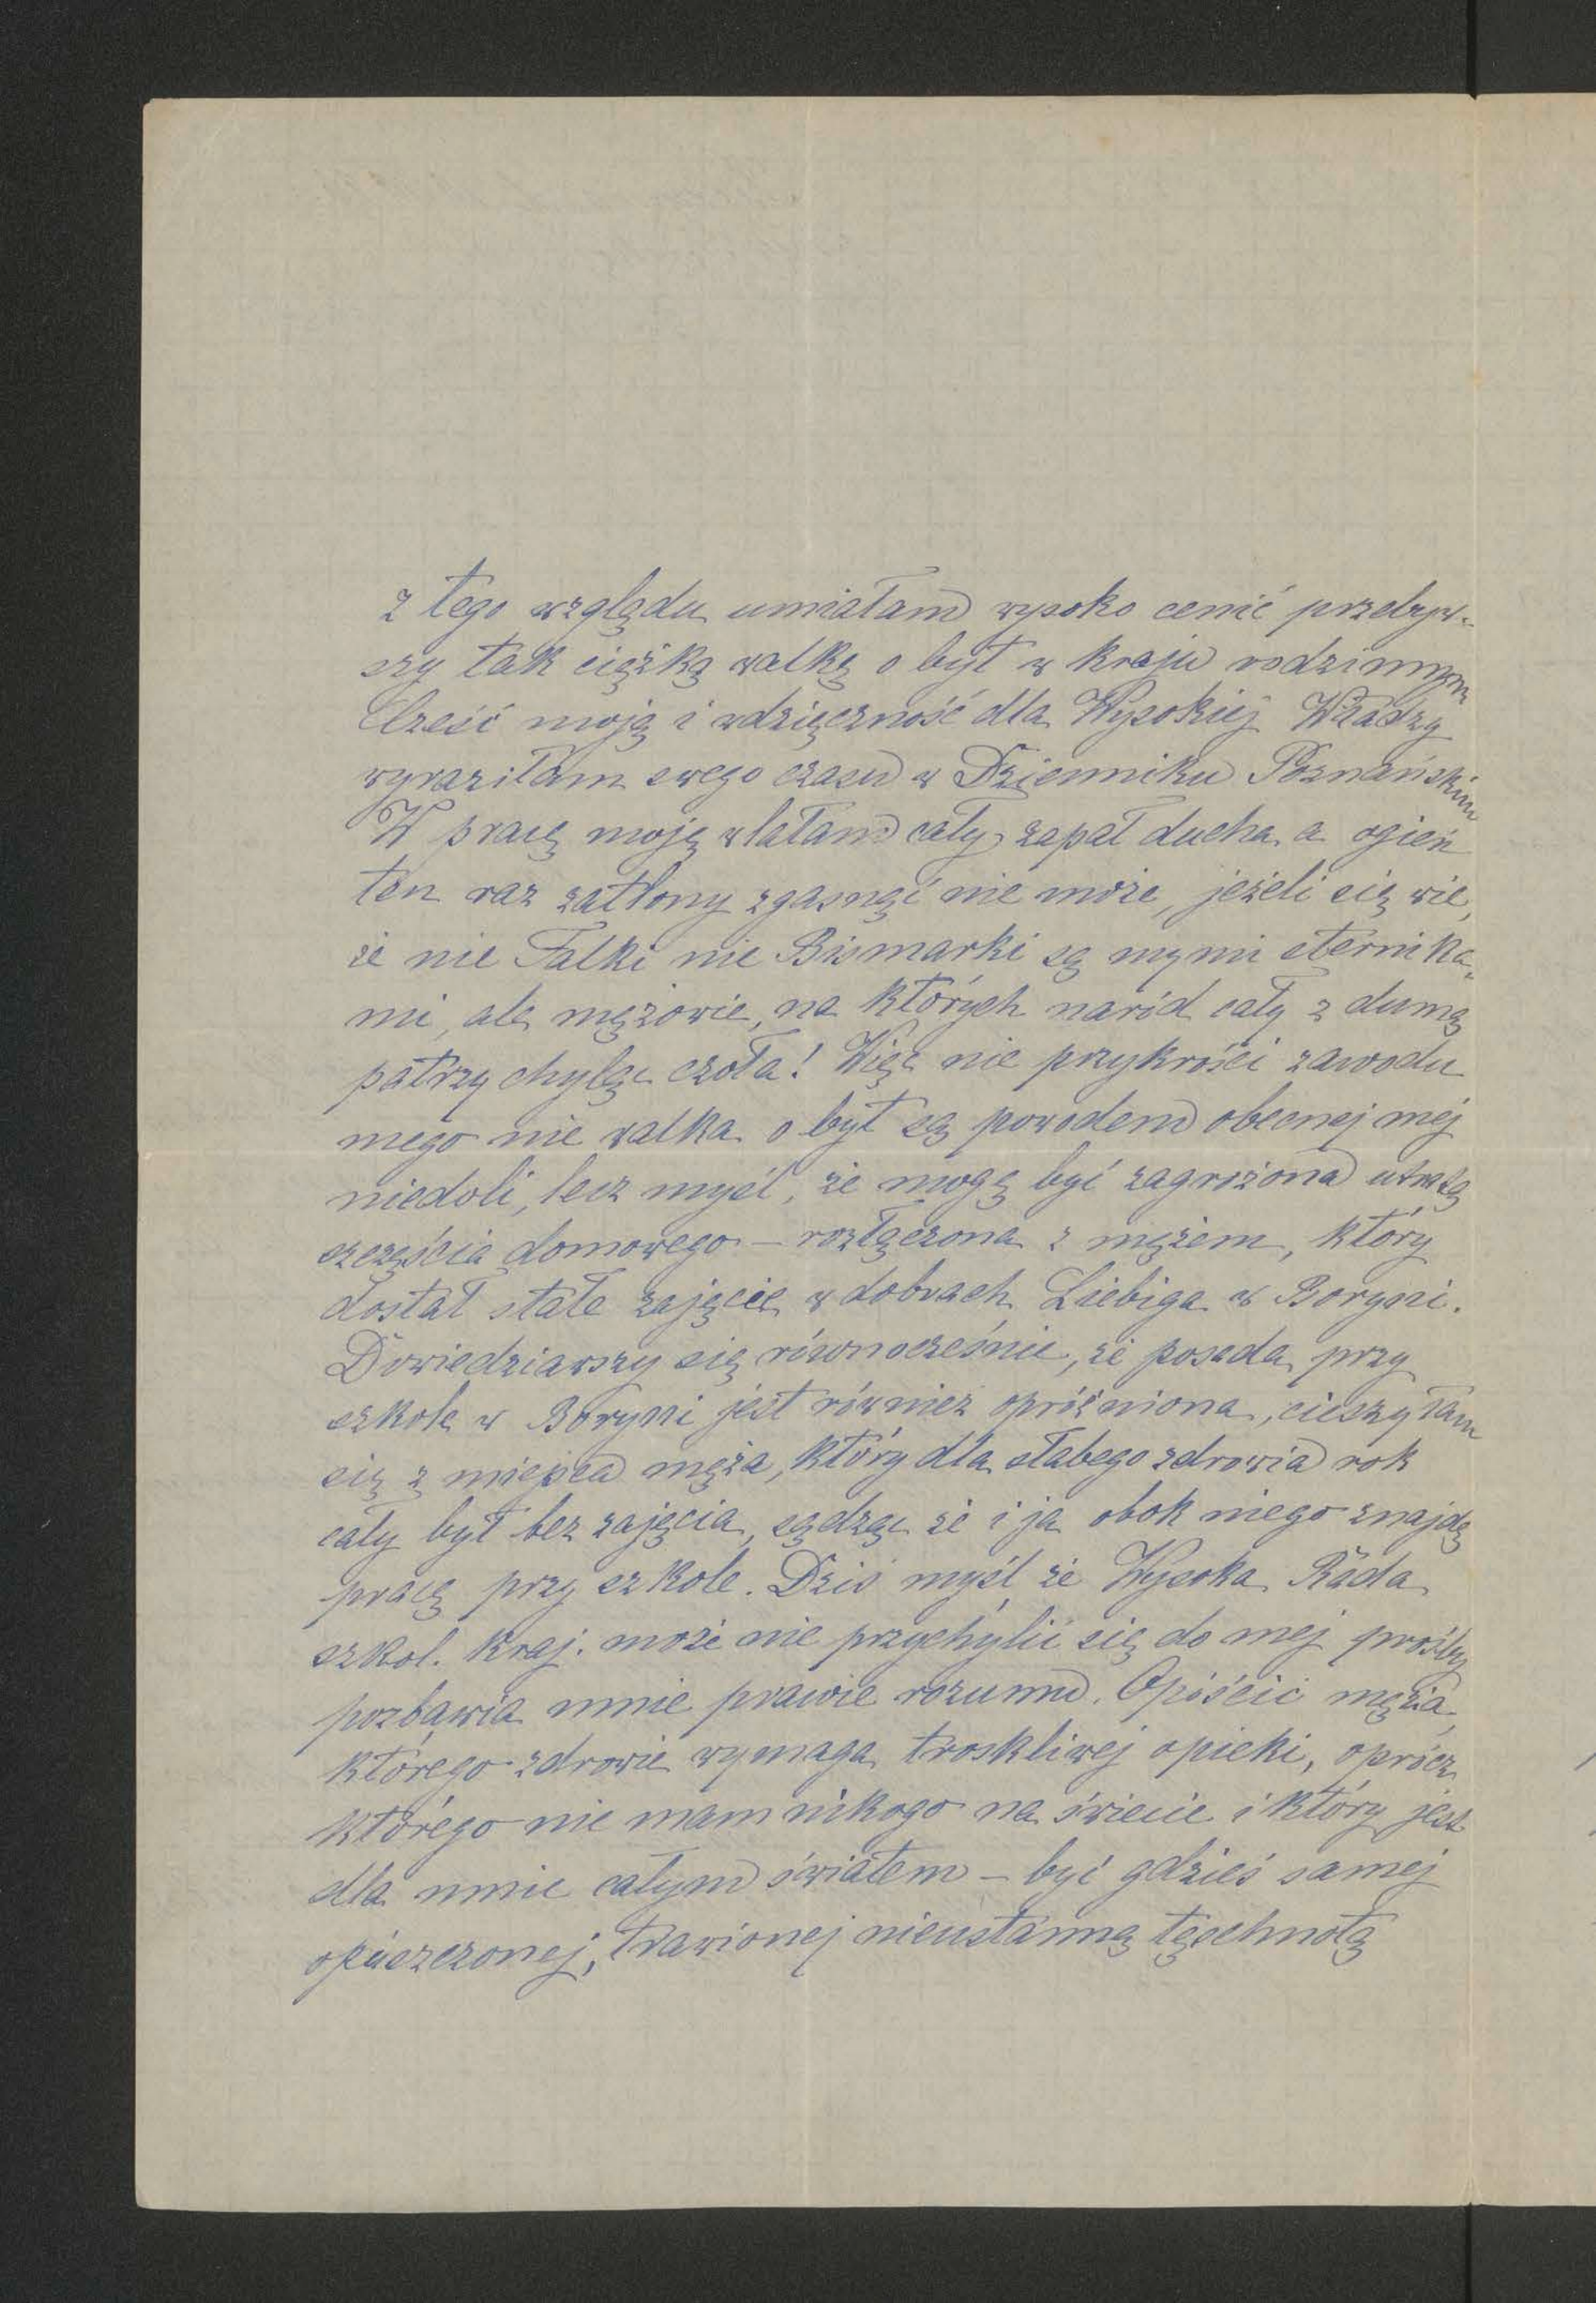 z tego względu umiałam wysoko cenić przebyw-
szy tak ciężką walkę o byt w kraju rodzinnym
Cześć moją i wdzięczność dla Wysokiej Władzy
wyraziłam swego czasu w Dzienniku Poznańskim
W pracę moję wlałam cały zapał ducha a ogień
ten raz zatlony zgasnąć nie może, jeżeli się wie,
że nie Falki nie Bismarki są mymi sternika„
mi, ale mężowie, na których naród cały z dumą
patrzy chyląc czoła! Więc nie przykrości zawodu
mego nie walka o byt są powodem obecnej mej
niedoli, lecz myśl, że mogę być zagrożona utratą
szczęścia domowego – rozłączona z mężem, który
dostał stałe zajęcie w dobrach Liebiga w Boryni.
Dowiedziawszy się równocześnie, że posada przy
szkole w Boryni jest również opróżniona, cieszyłam
się z miejsca męża, który dla słabego zdrowia rok
cały był bez zajęcia, sądząc że i ja obok niego znajdę
pracę przy szkole. Dziś myśl że Wysoka Rada
szkol. kraj. może nie przychylić się do mej prośby
pozbawia mnie prawie rozumu. Opóścić męża,
którego zdrowie wymaga troskliwej opieki, oprócz
którego nie mam nikogo na świecie i który jest
dla mnie całym światem – być gdzieś samej
opuszczonej, trawionej nieustanną tęschnotą